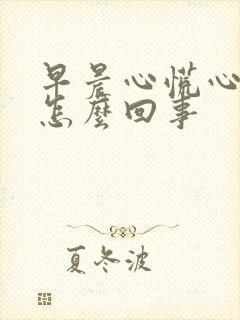 早晨心慌心
怎麼回事
夏冬波